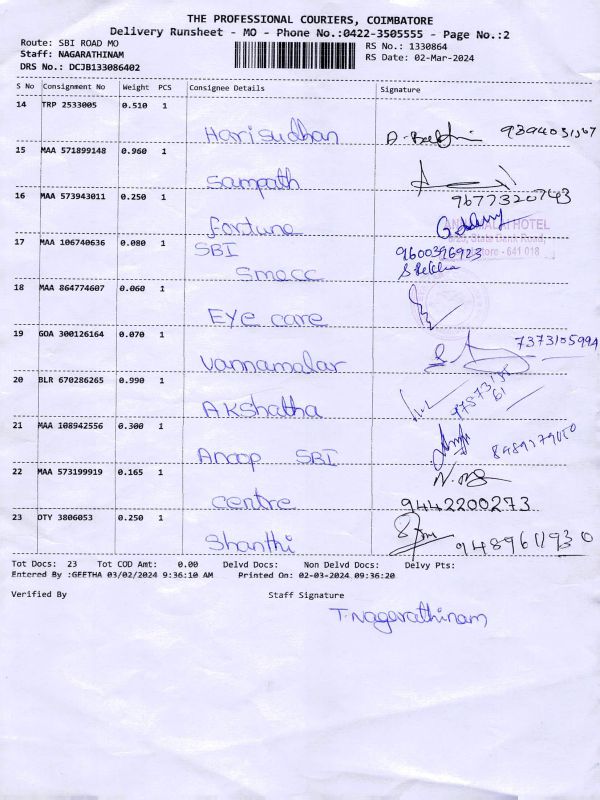 THE PROFESSIONAL COURIERS, COIMBATORE
Delivery Runsheet - MO - Phone No.:0422-3505555 - Page No.:2
Route: SBI ROAD MO
Staff: NAGARATHINAM
DRS No.: DCJB133086402
RS No.: 1330864
RS Date: 02-Mar-2024
S No Consignment No Weight PCS Consignee Details Signature
14 TRP 2533005 0.510 1
Harisudhan
15 MAA 571899148 0.960 1
Sampath
16 MAA 573943011 0.250 1
Fortune
17 MAA 106740636 0.080 1
SBI
Smecc
9600396923
HOTEL
State Bank Road,
641 018
18 MAA 864774607 0.060 1
Eye care
19 GOA 300126164 0.070 1
Vannamalar
7373105994
20 BLR 670286265 0.990 1
Akshatha
21 MAA 108942556 0.300 1
Anoop SBI
22 MAA 573199919 0.165 1
centre
9442200273
23 DTY 3806053 0.250 1
Shanthi
9489611930
Tot Docs: 23 Tot COD Amt: 0.00 Delvd Docs: Non Delvd Docs: Delvy Pts:
Entered By :GEETHA 03/02/2024 9:36:10 AM Printed On: 02-03-2024 09:36:20
Verified By Staff Signature
T.Nagarathinam